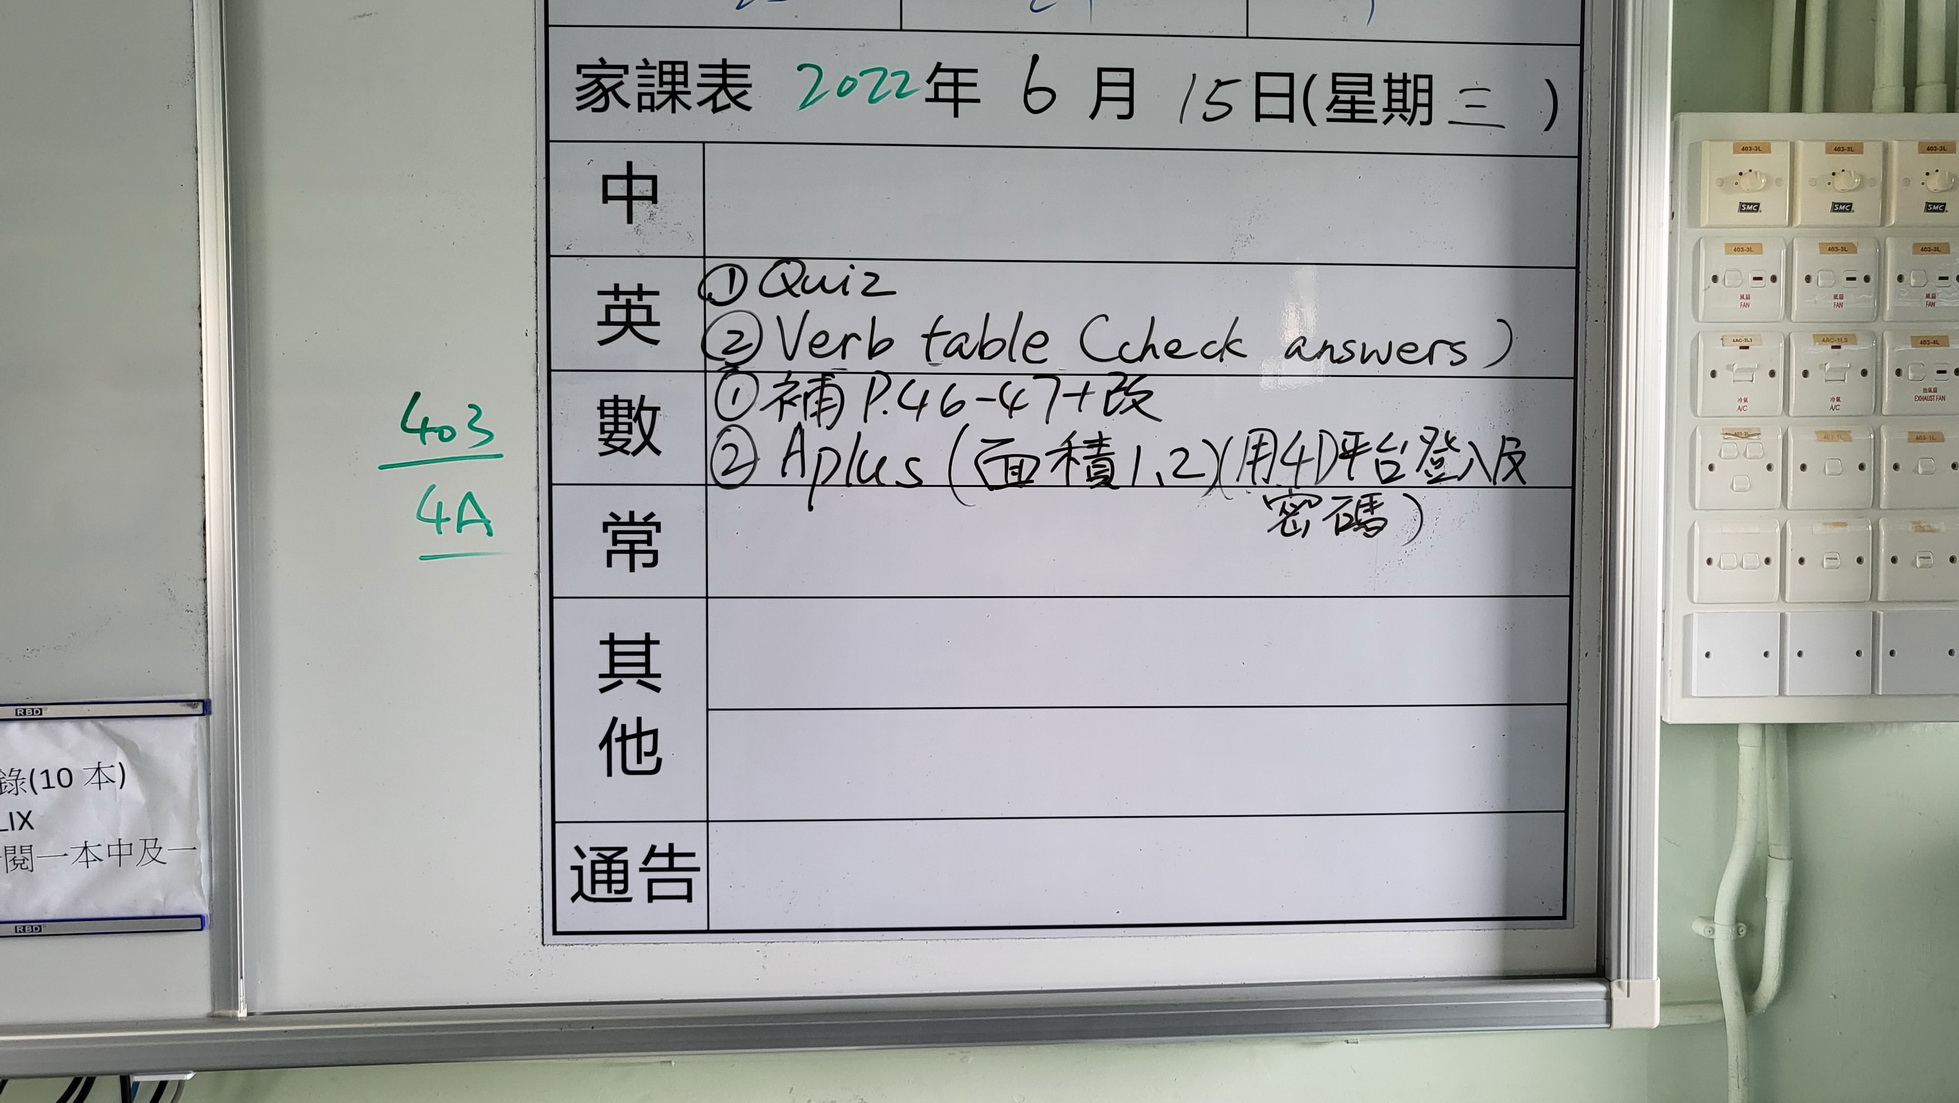 家課表 2022年 6 月 15日(星期三)
中
英
① Quiz
② Verb table (check answers)
數
① 補 P.46-47+改
② Aplus (面積1、2)(用4D平台登入及
密碼)
常
其他
通告
403
4A
RBD
錄(10 本)
LIX
閱一本中及一
RBD
403-3L
403-3L
403-3L
SMC
SMC
SMC
403-3L
403-3L
403-3L
風扇
FAN
風扇
FAN
風扇
FAN
4AC-1L3
403-4L
冷氣
A/C
冷氣
A/C
抽氣扇
EXHAUST FAN